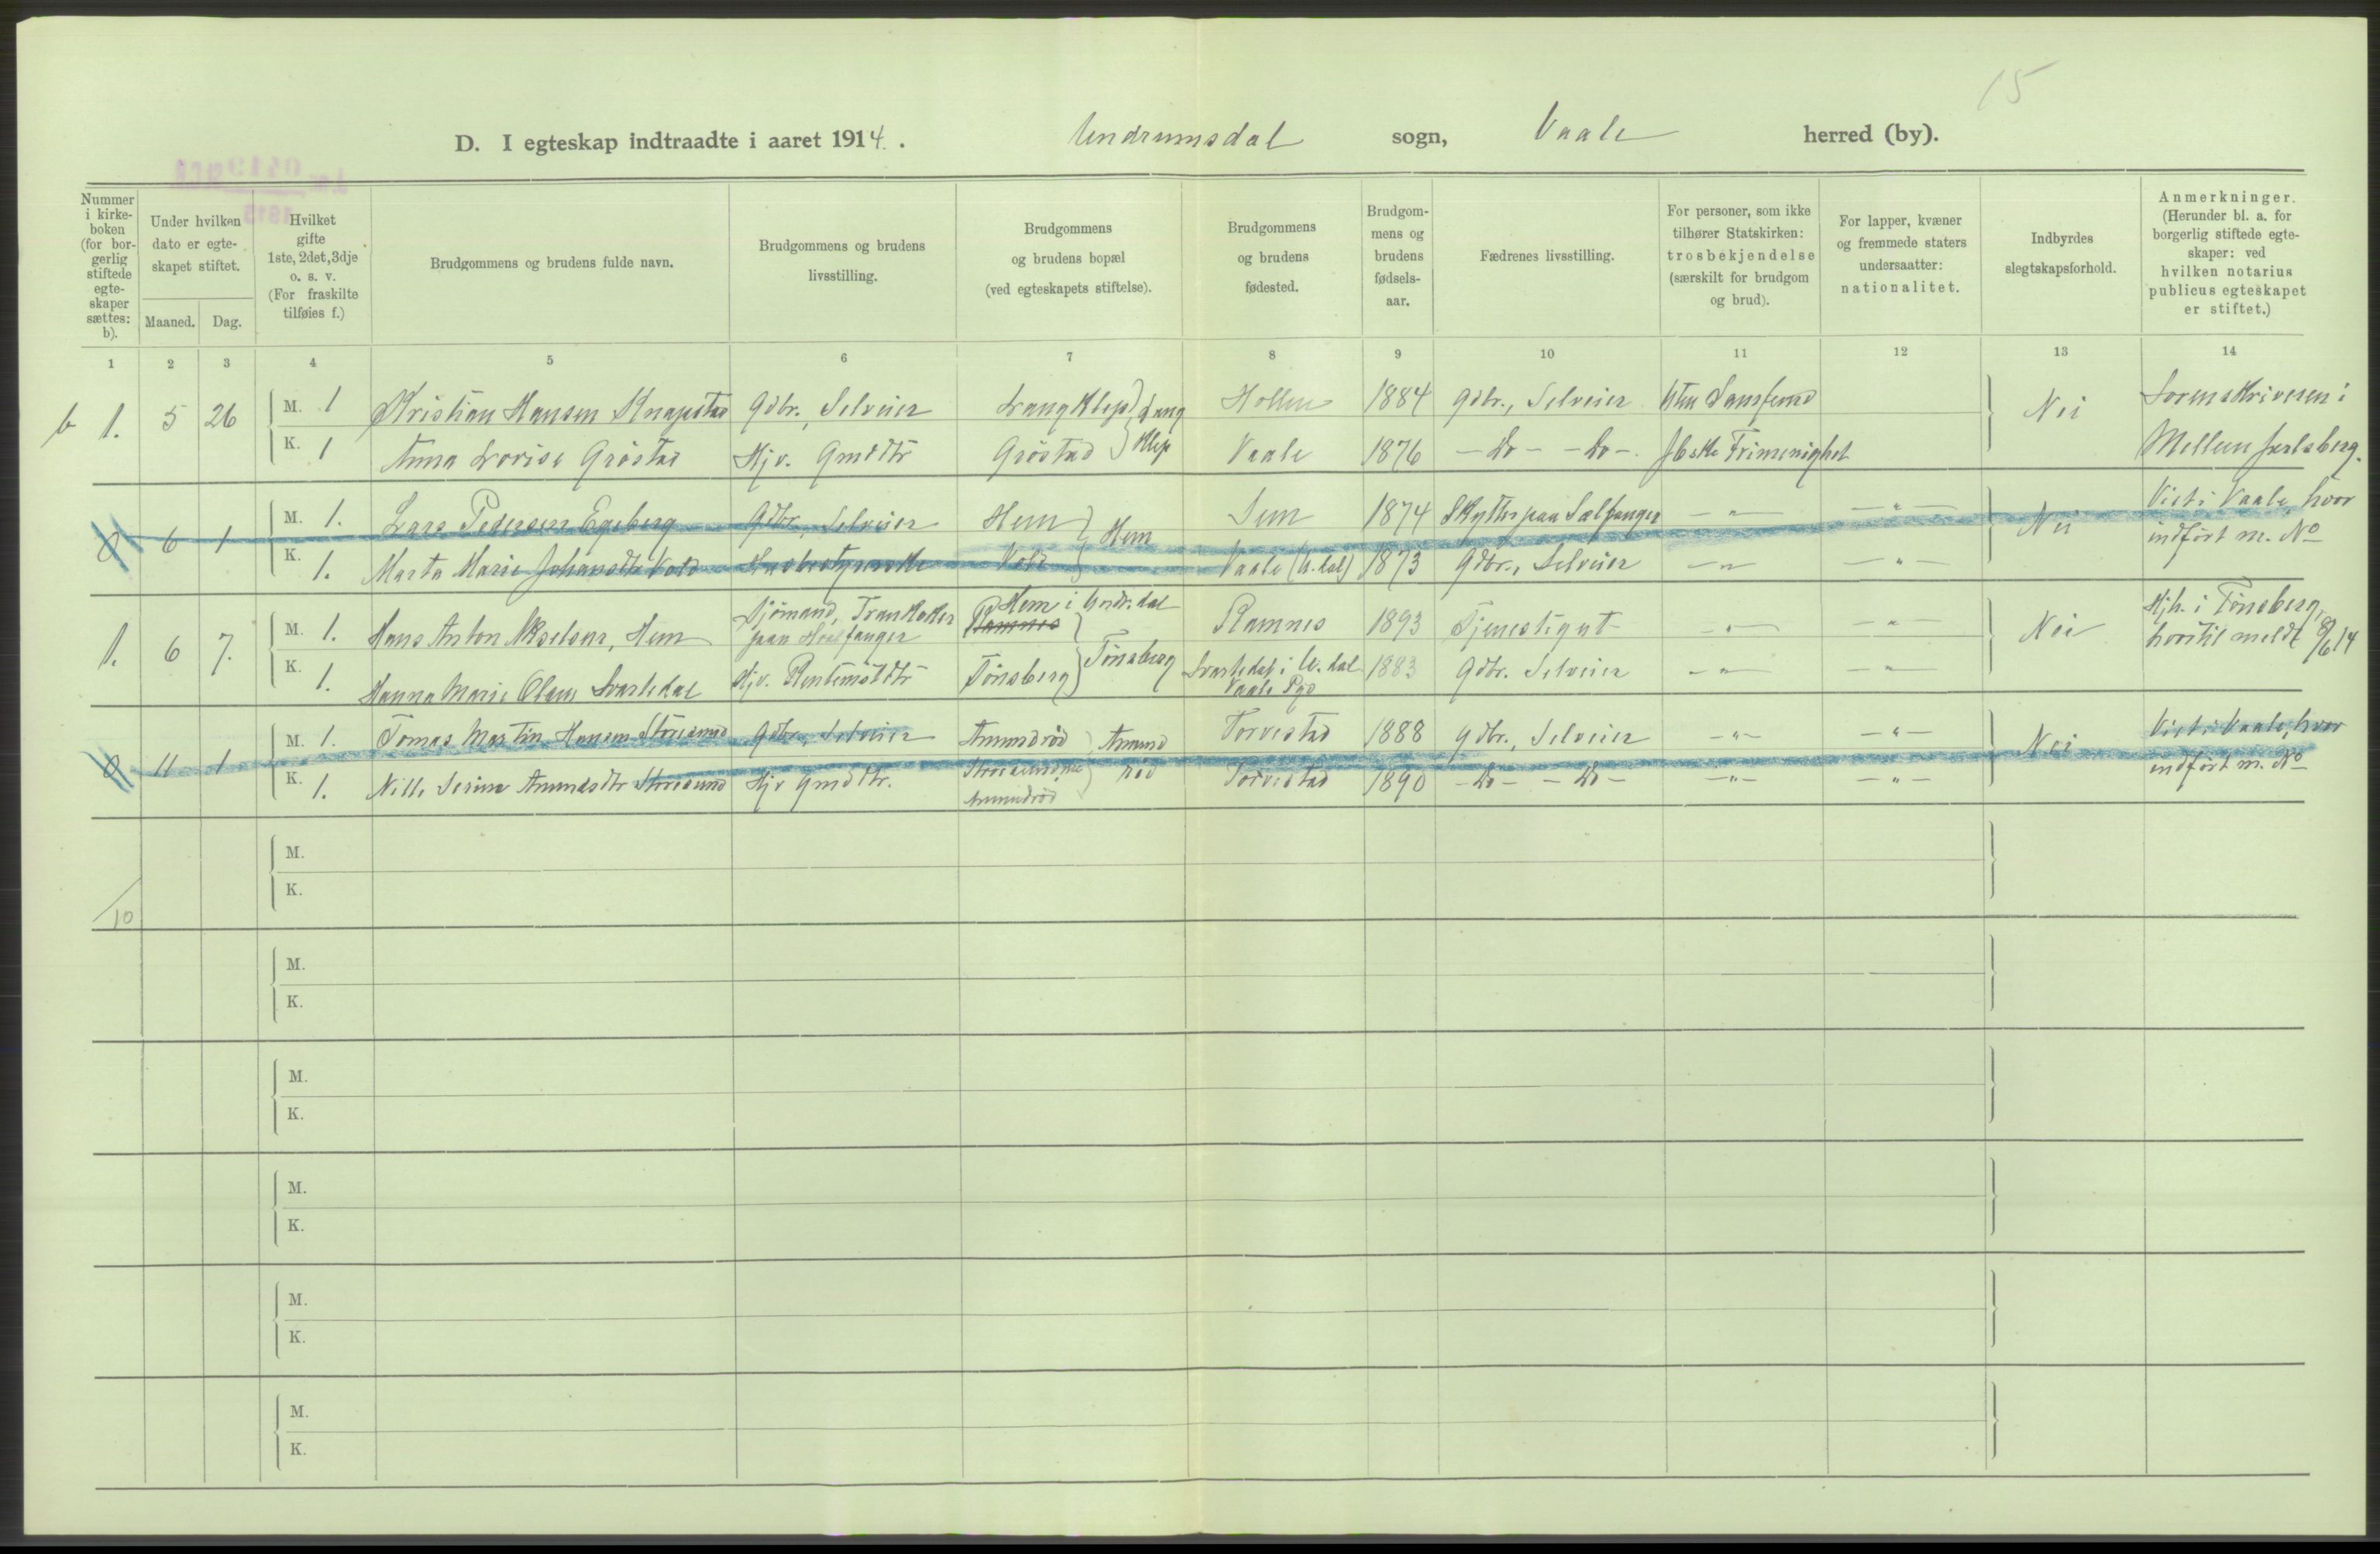 15
D. I egteskap indtraadte i aaret 1914. Undrumsdal sogn, Vaale herred (by).
Nummer i kirke-boken (for bor-gerlig stiftede egte-skaper sættes: b).
Under hvilken dato er egte-skapet stiftet.
Maaned. Dag.
Hvilket gifte 1ste, 2det, 3dje o. s. v. (For fraskilte tilføies f.)
Brudgommens og brudens fulde navn.
Brudgommens og brudens livsstilling.
Brudgommens og brudens bopæl (ved egteskapets stiftelse).
Brudgommens og brudens fødested.
Brudgom-mens og brudens fødsels-aar.
Fædrenes livsstilling.
For personer, som ikke tilhører Statskirken: trosbekjendelse (særskilt for brudgom og brud).
For lapper, kvæner og fremmede staters undersaatter: nationalitet.
Indbyrdes slegtskapsforhold.
Anmerkninger. (Herunder bl. a. for borgerlig stiftede egte-skaper: ved hvilken notarius publicus egteskapet er stiftet.)
1 2 3 4 5 6 7 8 9 10 11 12 13 14
b 1. 5 26 M. 1 Kristian Hansen Knapstad Gdbr., Selveier Langklep } Lang Hollen 1884 Gdbr., Selveier Uten Samfund Nei Sorenskriveren i
K. 1 Anna Lovise Gröstad Hjv. Gmddtr Gröstad } klep Vaale 1876 - do - - do -. Jbske Frimenighet Mellem Jarlsberg.
0 6 1 M. 1. Lars Pedersen Egeberg Gdbr., Selveier Hem } Hem Sem 1874 Skytter paa Sælfanger - " - - " - Nei Viet i Vaale, hvor
K. 1. Marta Marie Johansdtr Vold Husbestyrerske Vold } Vaale (U.dal) 1873 Gdbr., Selveier - " - - " - indført m. No
1. 6 7. M. 1. Hans Anton Akselsen, Hem Sjömand, Trankoker paa Hvalfanger Ramnes Hem i Undr.dal } Ramnes 1893 Tjenestegut - " - - " - Nei Kjh. i Tönsberg,
K. 1. Hanna Marie Olsen Svartedal Hjv. Rentemstdtr Tönsberg } Tönsberg Svartedal i U.dal Vaale Pgd 1883 Gdbr. Selveier - " - - " - hvortil meldt 8/6 14
0 11 1 M. 1. Tomas Martin Hansen Storesund Gdbr., Selveier Amundröd } Amund Torvestad 1888 Gdbr., Selveier - " - - " - Nei Viet i Vaale, hvor
K. 1. Nille Serine Amundsdtr Storesund Hjv Gmddtr. Amundröd } röd Torvestad 1890 - do - - do - - " - - " - indført m. No
M.
K.
10
M.
K.
M.
K.
M.
K.
M.
K.
M.
K.